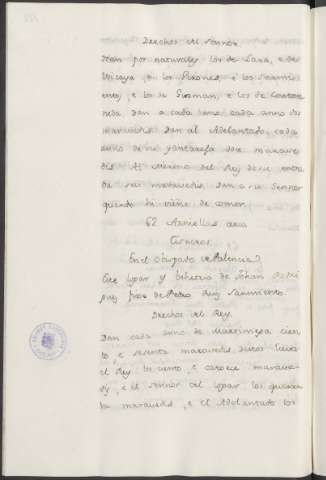 Derechos del Sennor
Han por naturales los de Lara, e de
Viscaya, e los Pisones, e los Sarmi
entos, e los de Gusman, e los de Castan
neda dan a cada uno cada anno dos
maravedis. Dan al Adelantado, cada
anno de
dis. Al Merino del Rey de su entra
da seis maravedis. Dan a su Sennor
quando hi viene de comer.
62 Arniellas
Cisneros
En el obispado de Palencia
Este logar es behetria de Johan
fijo de Pedro Ruys Sarmiento.
Derechos del Rey.
Dan cada anno de Martiniega cien
to, e sesenta maravedis destos lieva
el Rey los ciento, e catorce marave
dis, e el sennor del logar los quaren
ta maravedis, e el Adelantado los